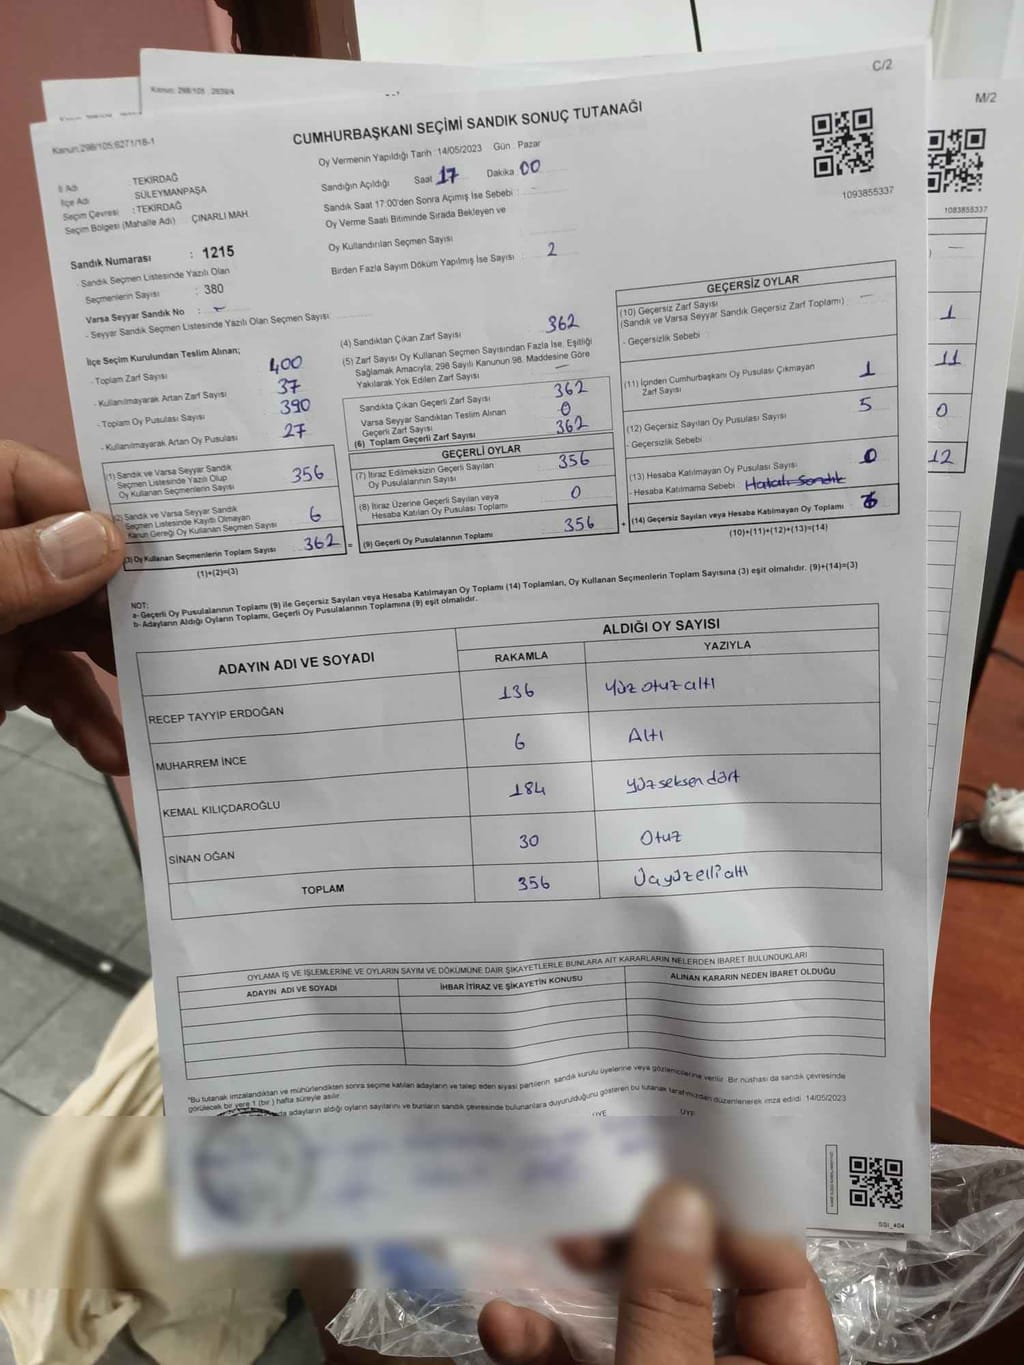 Kanun: 298/105, 2839/4
C/2
M/2
Kanun:298/105,6271/18-1
CUMHURBAŞKANI SEÇİMİ SANDIK SONUÇ TUTANAĞI
İl Adı : TEKİRDAĞ
İlçe Adı SÜLEYMANPAŞA
Seçim Çevresi : TEKİRDAĞ
Seçim Bölgesi (Mahalle Adı) ÇINARLI MAH.
Oy Vermenin Yapıldığı Tarih 14/05/2023 Gün : Pazar
Sandığın Açıldığı Saat 17 Dakika 00
Sandık Saat 17:00'den Sonra Açımış İse Sebebi :
Oy Verme Saati Bitiminde Sırada Bekleyen ve
Oy Kullandırılan Seçmen Sayısı
Birden Fazla Sayım Döküm Yapılmış İse Sayısı : 2
1093855337
1083855337
Sandık Numarası : 1215
- Sandık Seçmen Listesinde Yazılı Olan
Seçmenlerin Sayısı : 380
Varsa Seyyar Sandık No :
- Seyyar Sandık Seçmen Listesinde Yazılı Olan Seçmen Sayısı
İlçe Seçim Kurulundan Teslim Alınan;
- Toplam Zarf Sayısı 400
- Kullanılmayarak Artan Zarf Sayısı 37
- Toplam Oy Pusulası Sayısı 390
- Kullanılmayarak Artan Oy Pusulası 27
(1) Sandık ve Varsa Seyyar Sandık
Seçmen Listesinde Yazılı Olup
Oy Kullanan Seçmenlerin Sayısı 356
(2) Sandık ve Varsa Seyyar Sandık
Seçmen Listesinde Kayıtlı Olmayan
Kanun Gereği Oy Kullanan Seçmen Sayısı 6
(3) Oy Kullanan Seçmenlerin Toplam Sayısı 362 =
(1)+(2)=(3)
(4) Sandıktan Çıkan Zarf Sayısı 362
(5) Zarf Sayısı Oy Kullanan Seçmen Sayısından Fazla İse, Eşitliği
Sağlamak Amacıyla; 298 Sayılı Kanunun 98. Maddesine Göre
Yakılarak Yok Edilen Zarf Sayısı —
Sandıkta Çıkan Geçerli Zarf Sayısı 362
Varsa Seyyar Sandıktan Teslim Alınan
Geçerli Zarf Sayısı 0
(6) Toplam Geçerli Zarf Sayısı 362
GEÇERLİ OYLAR
(7) İtiraz Edilmeksizin Geçerli Sayılan
Oy Pusulasının Sayısı 356
(8) İtiraz Üzerine Geçerli Sayılan veya
Hesaba Katılan Oy Pusulası Toplamı 0
(9) Geçerli Oy Pusulalarının Toplamı 356 +
GEÇERSİZ OYLAR
(10) Geçersiz Zarf Sayısı
(Sandık ve Varsa Seyyar Sandık Geçersiz Zarf Toplamı) —
- Geçersizlik Sebebi :
(11) İçinden Cumhurbaşkanı Oy Pusulası Çıkmayan
Zarf Sayısı 1
(12) Geçersiz Sayılan Oy Pusulası Sayısı 5
- Geçersizlik Sebebi :
(13) Hesaba Katılmayan Oy Pusulası Sayısı 0
- Hesaba Katılmama Sebebi : Hatalı Sandık
(14) Geçersiz Sayılan veya Hesaba Katılmayan Oy Toplamı 6
(10)+(11)+(12)+(13)=(14)
1
11
0
12
NOT:
a- Geçerli Oy Pusulalarının Toplamı (9) ile Geçersiz Sayılan veya Hesaba Katılmayan Oy Toplamı (14) Toplamları, Oy Kullanan Seçmenlerin Toplam Sayısına (3) eşit olmalıdır. (9)+(14)=(3)
b- Adayların Aldığı Oyların Toplamı, Geçerli Oy Pusulalarının Toplamına (9) eşit olmalıdır.
ADAYIN ADI VE SOYADI
ALDIĞI OY SAYISI
RAKAMLA YAZIYLA
RECEP TAYYİP ERDOĞAN 136 Yüz otuz altı
MUHARREM İNCE 6 Altı
KEMAL KILIÇDAROĞLU 184 yüz seksen dört
SİNAN OĞAN 30 Otuz
TOPLAM 356 Üçyüzelli altı
OYLAMA İŞ VE İŞLEMLERİNE VE OYLARIN SAYIM VE DÖKÜMÜNE DAİR ŞİKAYETLERLE BUNLARA AİT KARARLARIN NELERDEN İBARET BULUNDUKLARI
ADAYIN ADI VE SOYADI İHBAR İTİRAZ VE ŞİKAYETİN KONUSU ALINAN KARARIN NEDEN İBARET OLDUĞU
"Bu tutanak imzalandıktan ve mühürlendikten sonra seçime katılan adayların ve talep eden siyasi partilerin sandık kurulu üyelerine veya gözlemcilerine verilir. Bir nüshası da sandık çevresinde
görülecek bir yere 1 (bir) hafta süreyle asılır.
adayların aldığı oyların sayılarını ve bunların sandık çevresinde bulunanlara duyurulduğunu gösteren bu tutanak tarafımızdan düzenlenerek imza edildi. 14/05/2023
ÜYE ÜYE
SSI_404